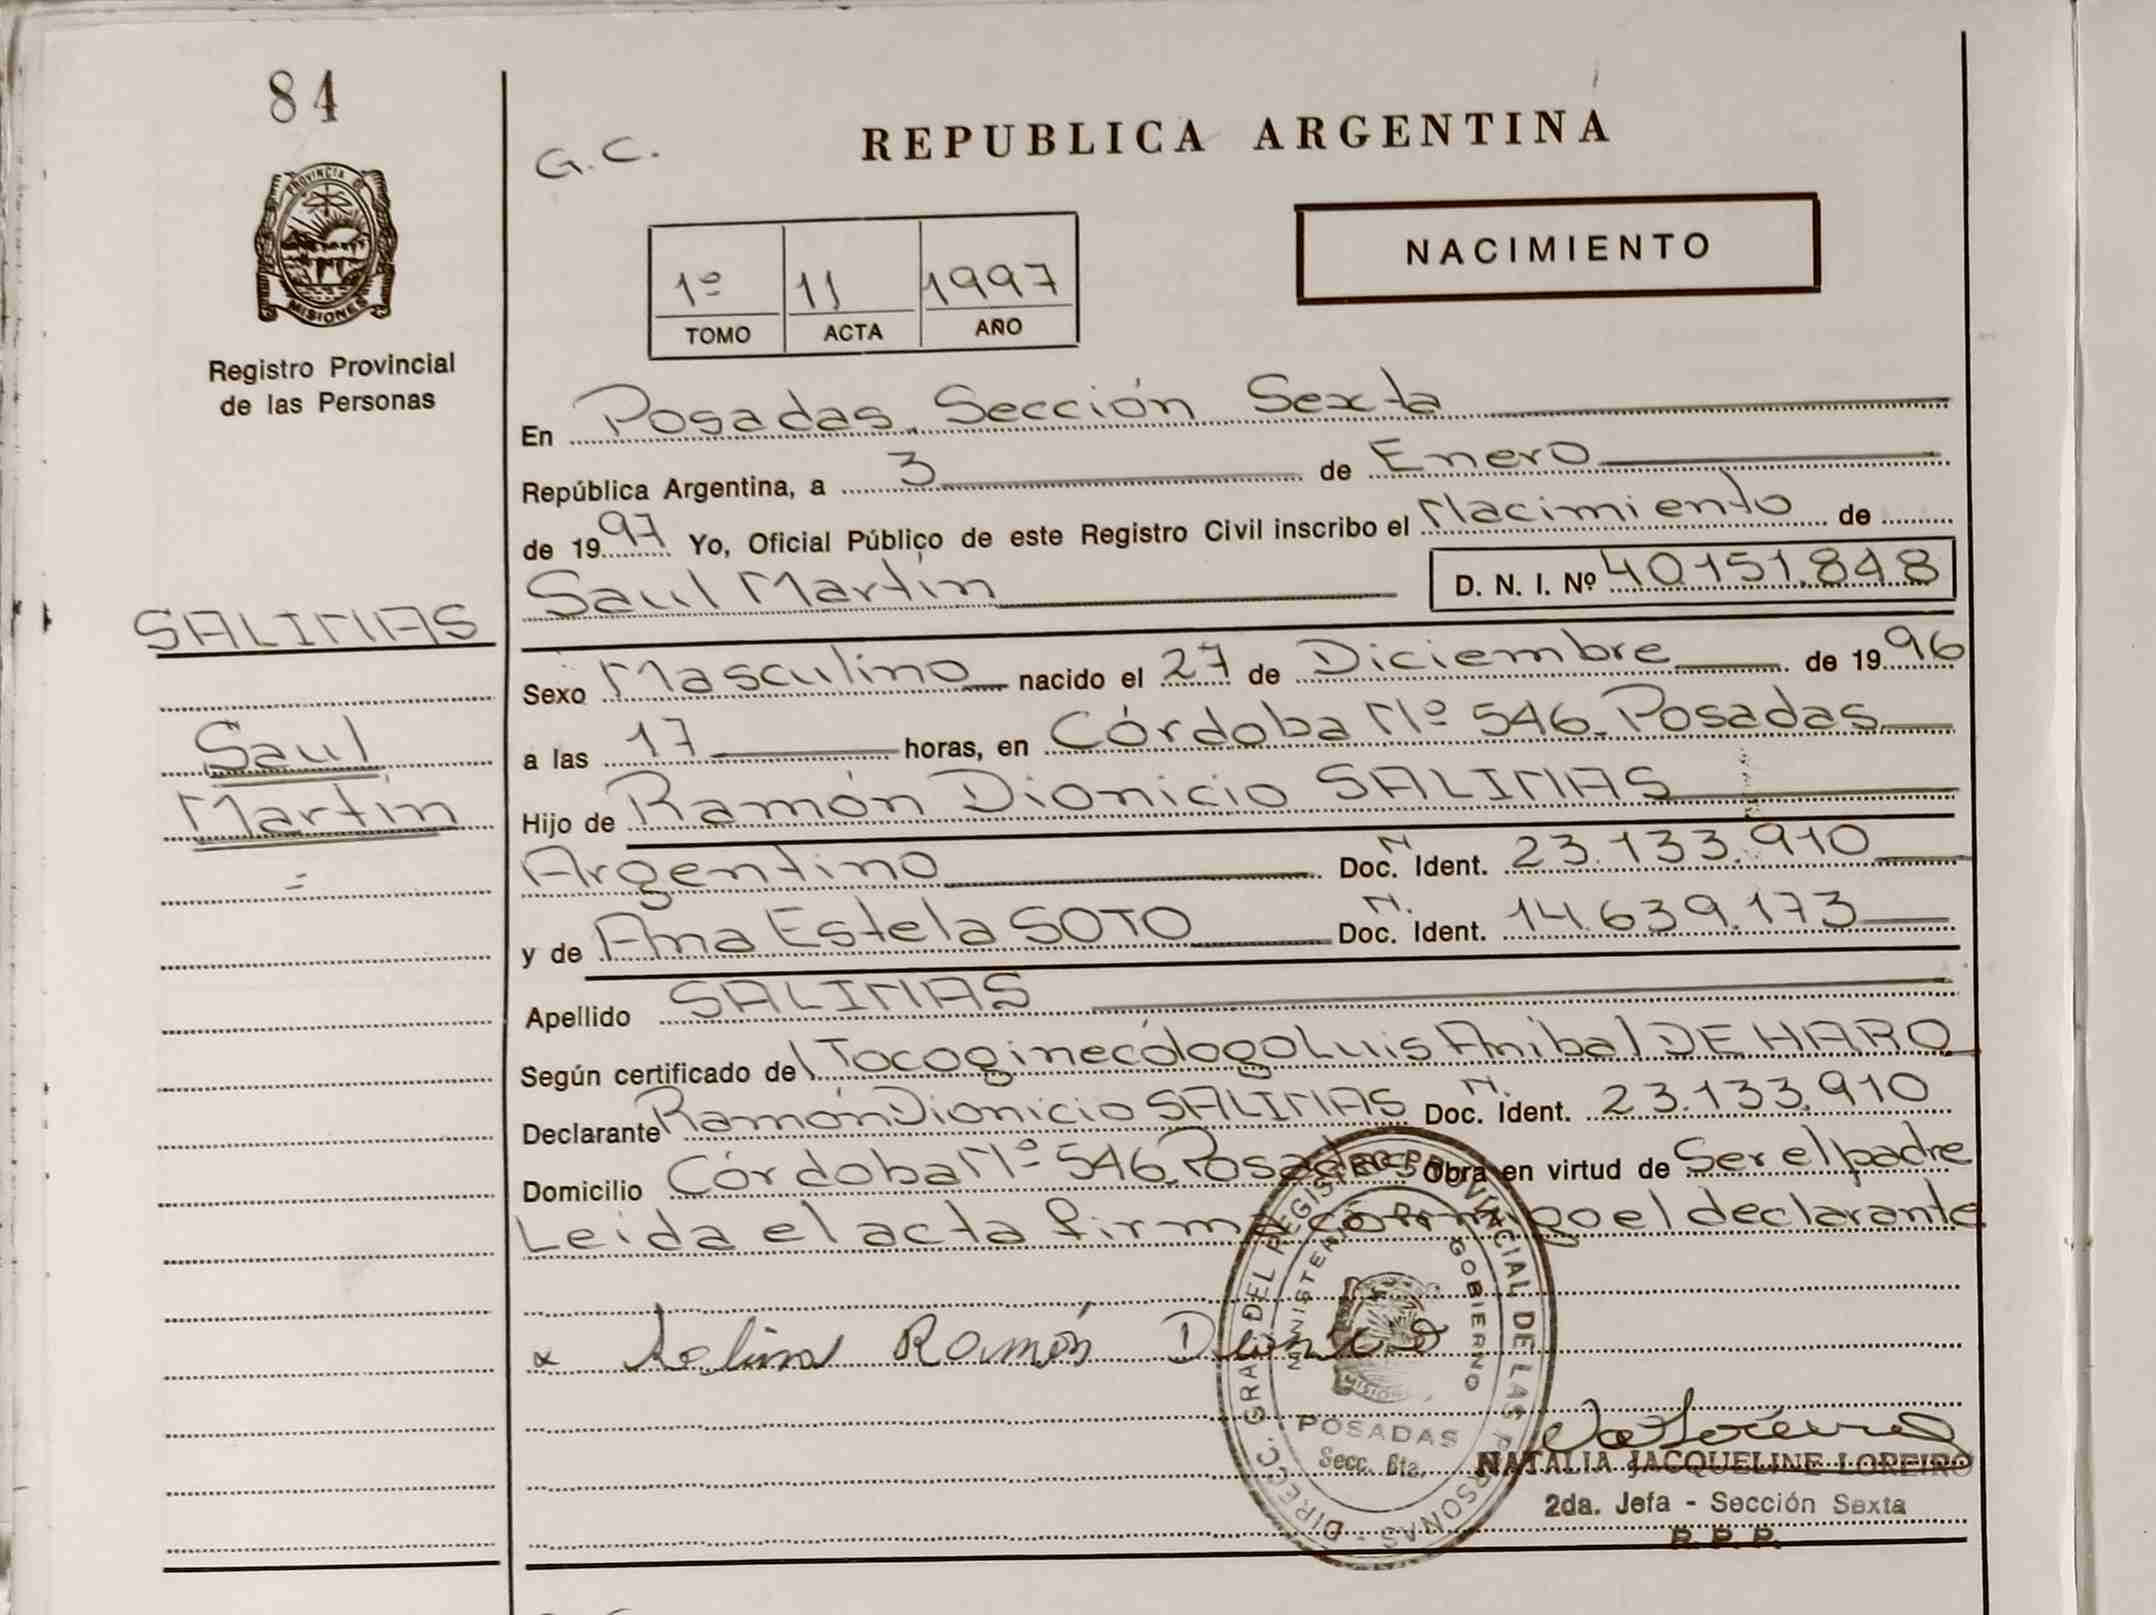 84
PROVINCIA DE
MISIONES
Registro Provincial
de las Personas
G.C.
REPUBLICA ARGENTINA
NACIMIENTO
1º 11 1997
TOMO ACTA AÑO
En Posadas, Sección Sexta
República Argentina, a 3 de Enero
de 1997 Yo, Oficial Público de este Registro Civil inscribo el Nacimiento de
Saul Martín D. N. I. Nº 40151.848
SALINAS
Saul
Martín
Sexo Masculino nacido el 27 de Diciembre de 1996
a las 17 horas, en Córdoba Nº 546. Posadas
Hijo de Ramón Dionicio SALINAS
Argentino Doc. N. Ident. 23.133.910
y de Ana Estela SOTO Doc. N. Ident. 14.639.173
Apellido SALINAS
Según certificado del Tocoginecólogo Luis Anibal DE HARO
Declarante Ramón Dionicio SALINAS Doc. N. Ident. 23.133.910
Domicilio Córdoba Nº 546. Posadas Obra en virtud de Ser el padre
Leida el acta firma conmigo el declarante
x Salinas Ramón Dionicio
DIRECC. GRAL DEL REGISTRO PROVINCIAL DE LAS PERSONAS
MINISTERIO GOBIERNO
MISIONES
POSADAS
Secc. 6ta.
NATALIA JACQUELINE LOREIRO
2da. Jefa - Sección Sexta
R. P. P.